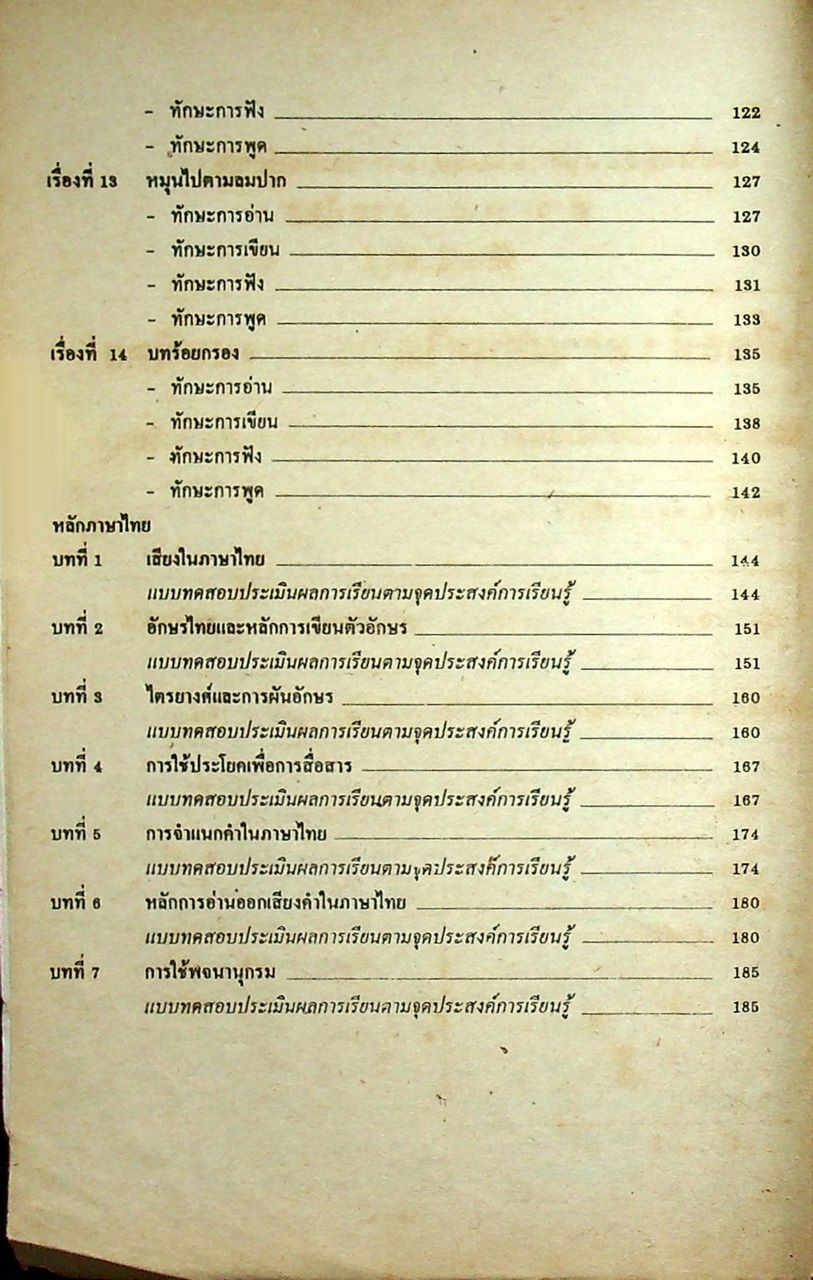 - ทักษะการฟัง 122
- ทักษะการพูด 124
เรื่องที่ 13 หมุนไปตามลมปาก 127
- ทักษะการอ่าน 127
- ทักษะการเขียน 130
- ทักษะการฟัง 131
- ทักษะการพูด 133
เรื่องที่ 14 บทร้อยกรอง 135
- ทักษะการอ่าน 135
- ทักษะการเขียน 138
- ทักษะการฟัง 140
- ทักษะการพูด 142
หลักภาษาไทย
บทที่ 1 เสียงในภาษาไทย 144
แบบทดสอบประเมินผลการเรียนตามจุดประสงค์การเรียนรู้ 144
บทที่ 2 อักษรไทยและหลักการเขียนตัวอักษร 151
แบบทดสอบประเมินผลการเรียนตามจุดประสงค์การเรียนรู้ 151
บทที่ 3 ไตรยางศ์และการผันอักษร 160
แบบทดสอบประเมินผลการเรียนตามจุดประสงค์การเรียนรู้ 160
บทที่ 4 การใช้ประโยคเพื่อการสื่อสาร 167
แบบทดสอบประเมินผลการเรียนตามจุดประสงค์การเรียนรู้ 167
บทที่ 5 การจำแนกคำในภาษาไทย 174
แบบทดสอบประเมินผลการเรียนตามจุดประสงค์การเรียนรู้ 174
บทที่ 6 หลักการอ่านออกเสียงคำในภาษาไทย 180
แบบทดสอบประเมินผลการเรียนตามจุดประสงค์การเรียนรู้ 180
บทที่ 7 การใช้พจนานุกรม 185
แบบทดสอบประเมินผลการเรียนตามจุดประสงค์การเรียนรู้ 185